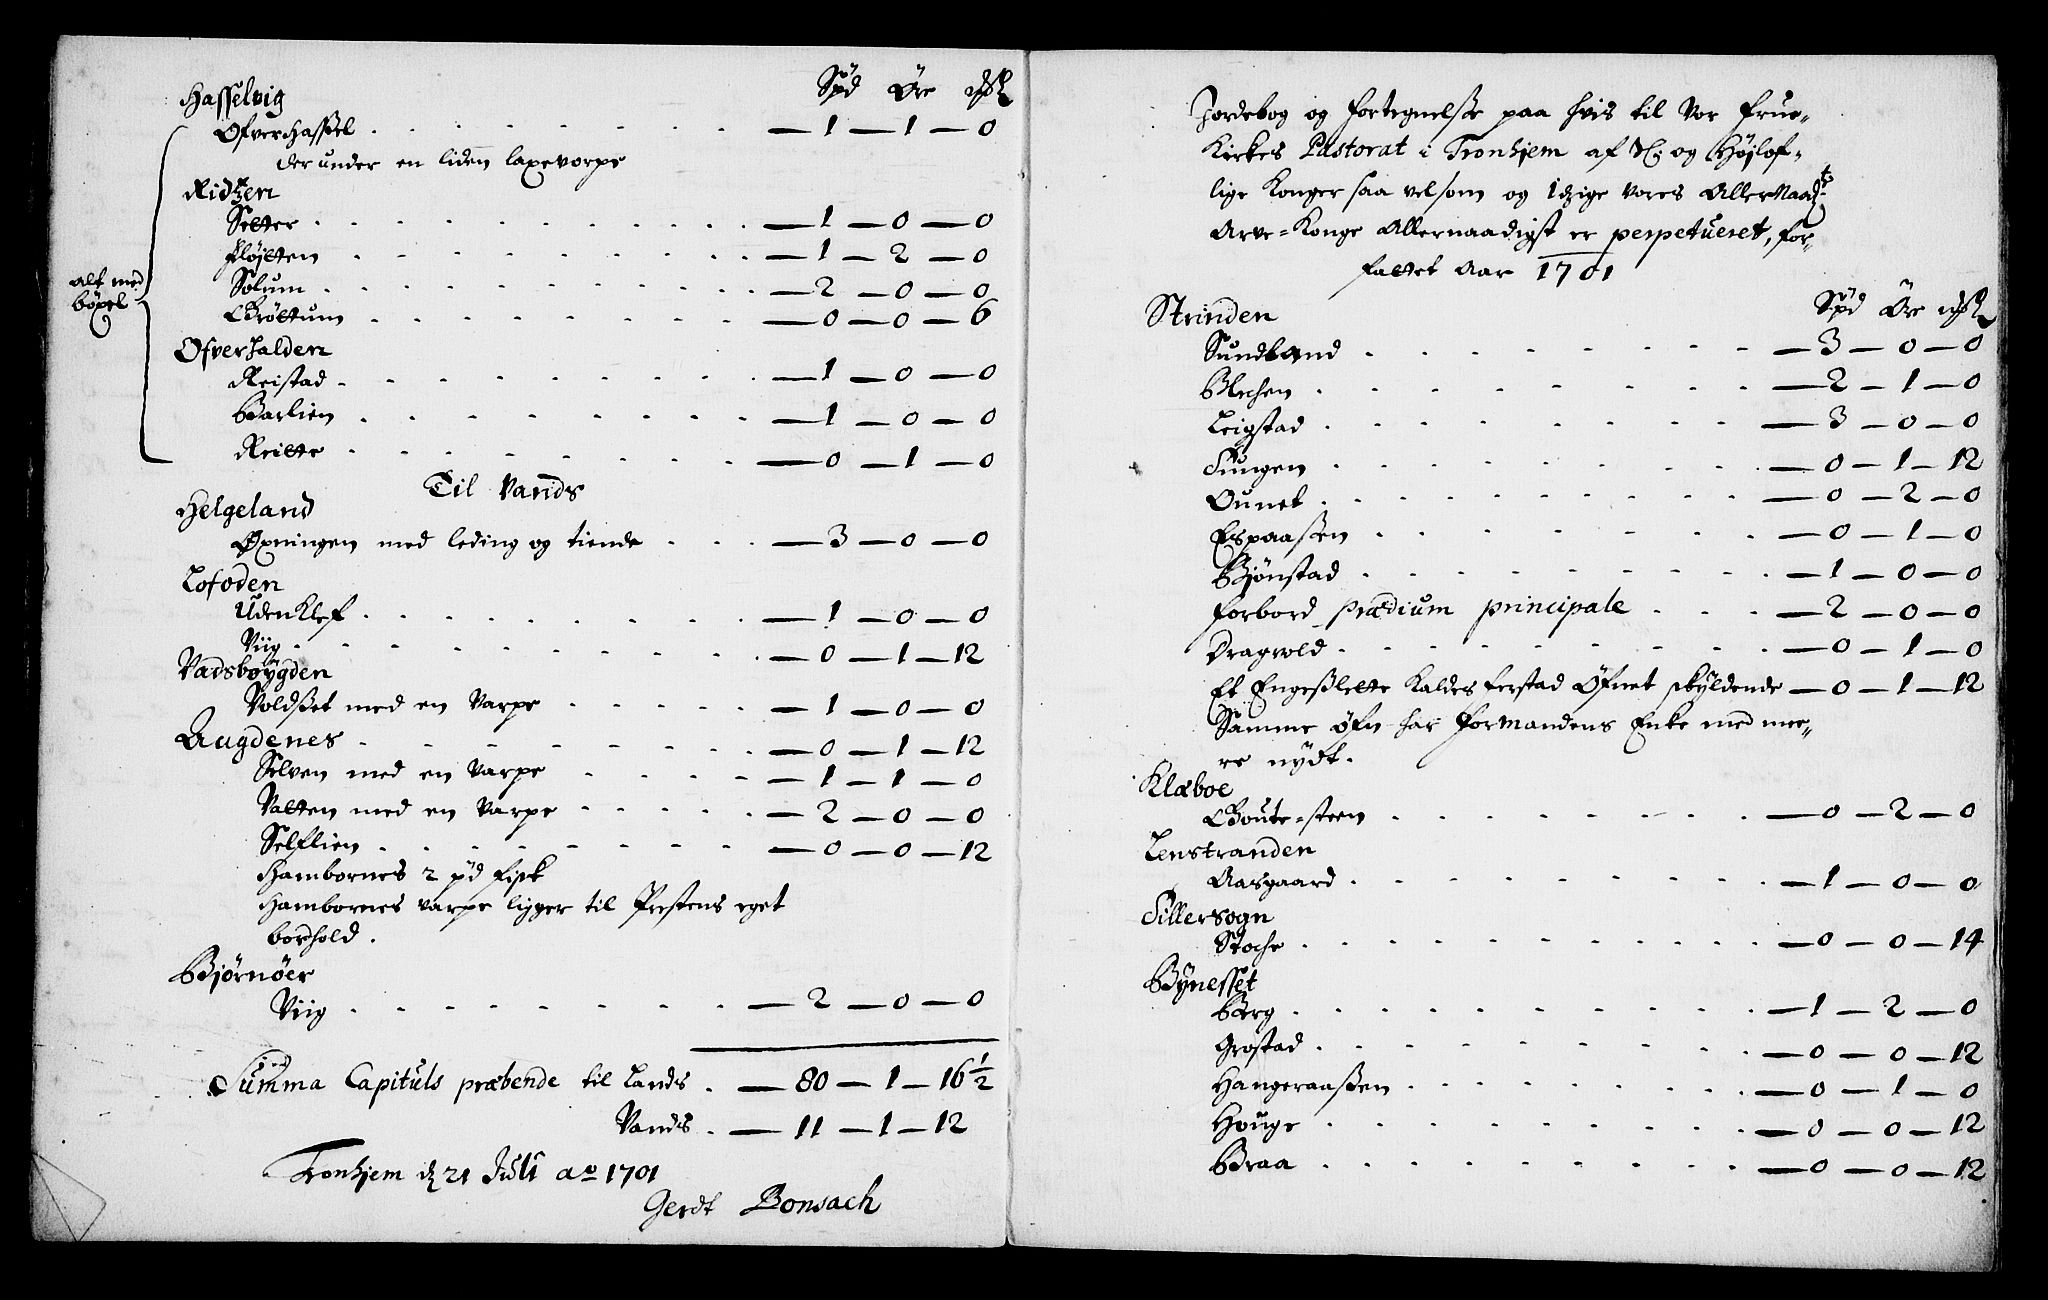 Spd Öre
Hasselvig
Ofverhassel . . . . . . . . — 1 — 1 — 0
der under en liden laxevorpe
Ridtzen
Setter . . . . . . . . — 1 — 0 — 0
Fløjtten . . . . . . . . — 1 — 2 — 0
Solum . . . . . . . . — 2 — 0 — 0
Grøttum . . . . . . . . — 0 — 0 — 6
alt med
bøxel
Ofverhalden
Reistad . . . . . . . . — 1 — 0 — 0
Barlien . . . . . . . . — 1 — 0 — 0
Reitte . . . . . . . . — 0 — 1 — 0
Til Vands
Helgeland
Øxningen med leding og tiende . . . — 3 — 0 — 0
Lofoden
Udenklef . . . . . . . . — 1 — 0 — 0
Viig . . . . . . . . — 0 — 1 — 12
Vadsbøygden
Voldset med en Varpe . . . . . — 1 — 0 — 0
Augdenes . . . . . . . . — 0 — 1 — 12
Selven med en Varpe . . . . — 1 — 1 — 0
Vatten med en Varpe . . . . — 2 — 0 — 0
Selflien . . . . . . . . — 0 — 0 — 12
Hambornes 2 pd fisk
Hambornes varpe ligger til Prestens eget
bordhold .
Bjørnöer
Viig . . . . . . . . — 2 — 0 — 0
Summa Capituls præbende til Lands . — 80 — 1 — 16 1/2
Vands . — 11 — 1 — 12
Tronhjem d 21 Juli ao 1701
Gerdt Bonsach
Jordebog og fortegnelse paa hvis til Vor Frue„
Kirkes Pastorat i Tronhjem af og Højlof„
lige Konger saa velsom og itzige vores AllerNaad
Arve=Konge Allernaadigst er perpetueret, for„
fattet Aar 1701
Spd Öre
Strinden
Sundland . . . . . . . . — 3 — 0 — 0
Blechen . . . . . . . . — 2 — 1 — 0
Leigstad . . . . . . . . — 3 — 0 — 0
Tungen . . . . . . . . — 0 — 1 — 12
Ounet . . . . . . . . — 0 — 2 — 0
Espaassen . . . . . . . . — 0 — 1 — 0
Bjönstad . . . . . . . . — 1 — 0 — 0
Forbord prædium principale . . . — 2 — 0 — 0
Dragvold . . . . . . . . — 0 — 1 — 0
Et Engeslette Kaldes ferstad Øfnet skyldende — 0 — 1 — 12
Samme øfn har formandens Enke med mee„
re nydt .
Klæboe
Goute-steen . . . . . . . . — 0 — 2 — 0
Lenstranden
Aasgaard . . . . . . . . — 1 — 0 — 0
Tillersogn
Stoche . . . . . . . . — 0 — 0 — 14
Bynesset
Berg . . . . . . . . — 1 — 2 — 0
Grostad . . . . . . . . — 0 — 0 — 12
Hangeraassen . . . . . . . . — 0 — 1 — 0
Houge . . . . . . . . — 0 — 0 — 12
Braa . . . . . . . . — 0 — 0 — 12